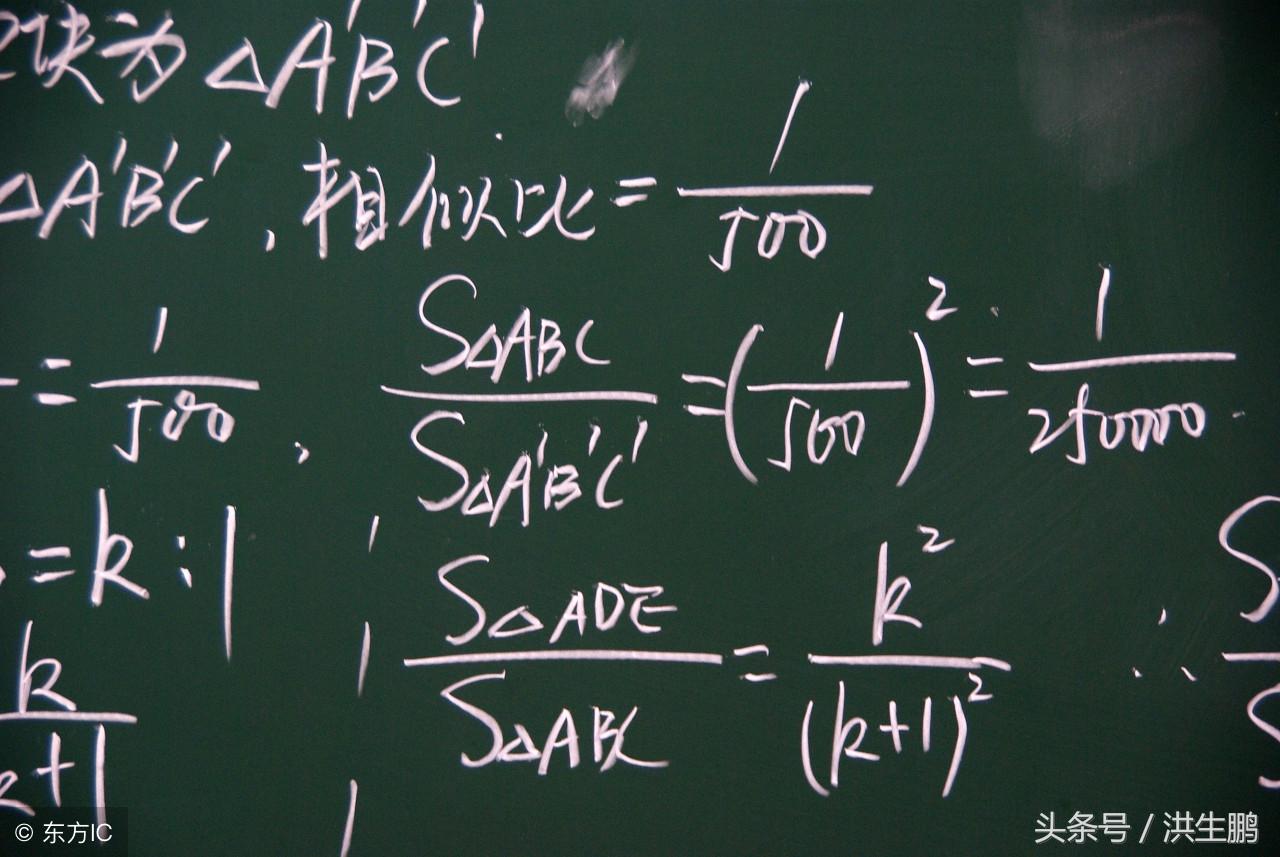 块为 △A'B'C'
△A'B'C', 相似比 = 1/500
= 1/500, S△ABC/S△A'B'C' = (1/500)² = 1/250000.
= k:1
k/k+1
S△ADE/S△ABC = k²/(k+1)² ∴ S/S
© 东方IC
头条号 / 洪生鹏